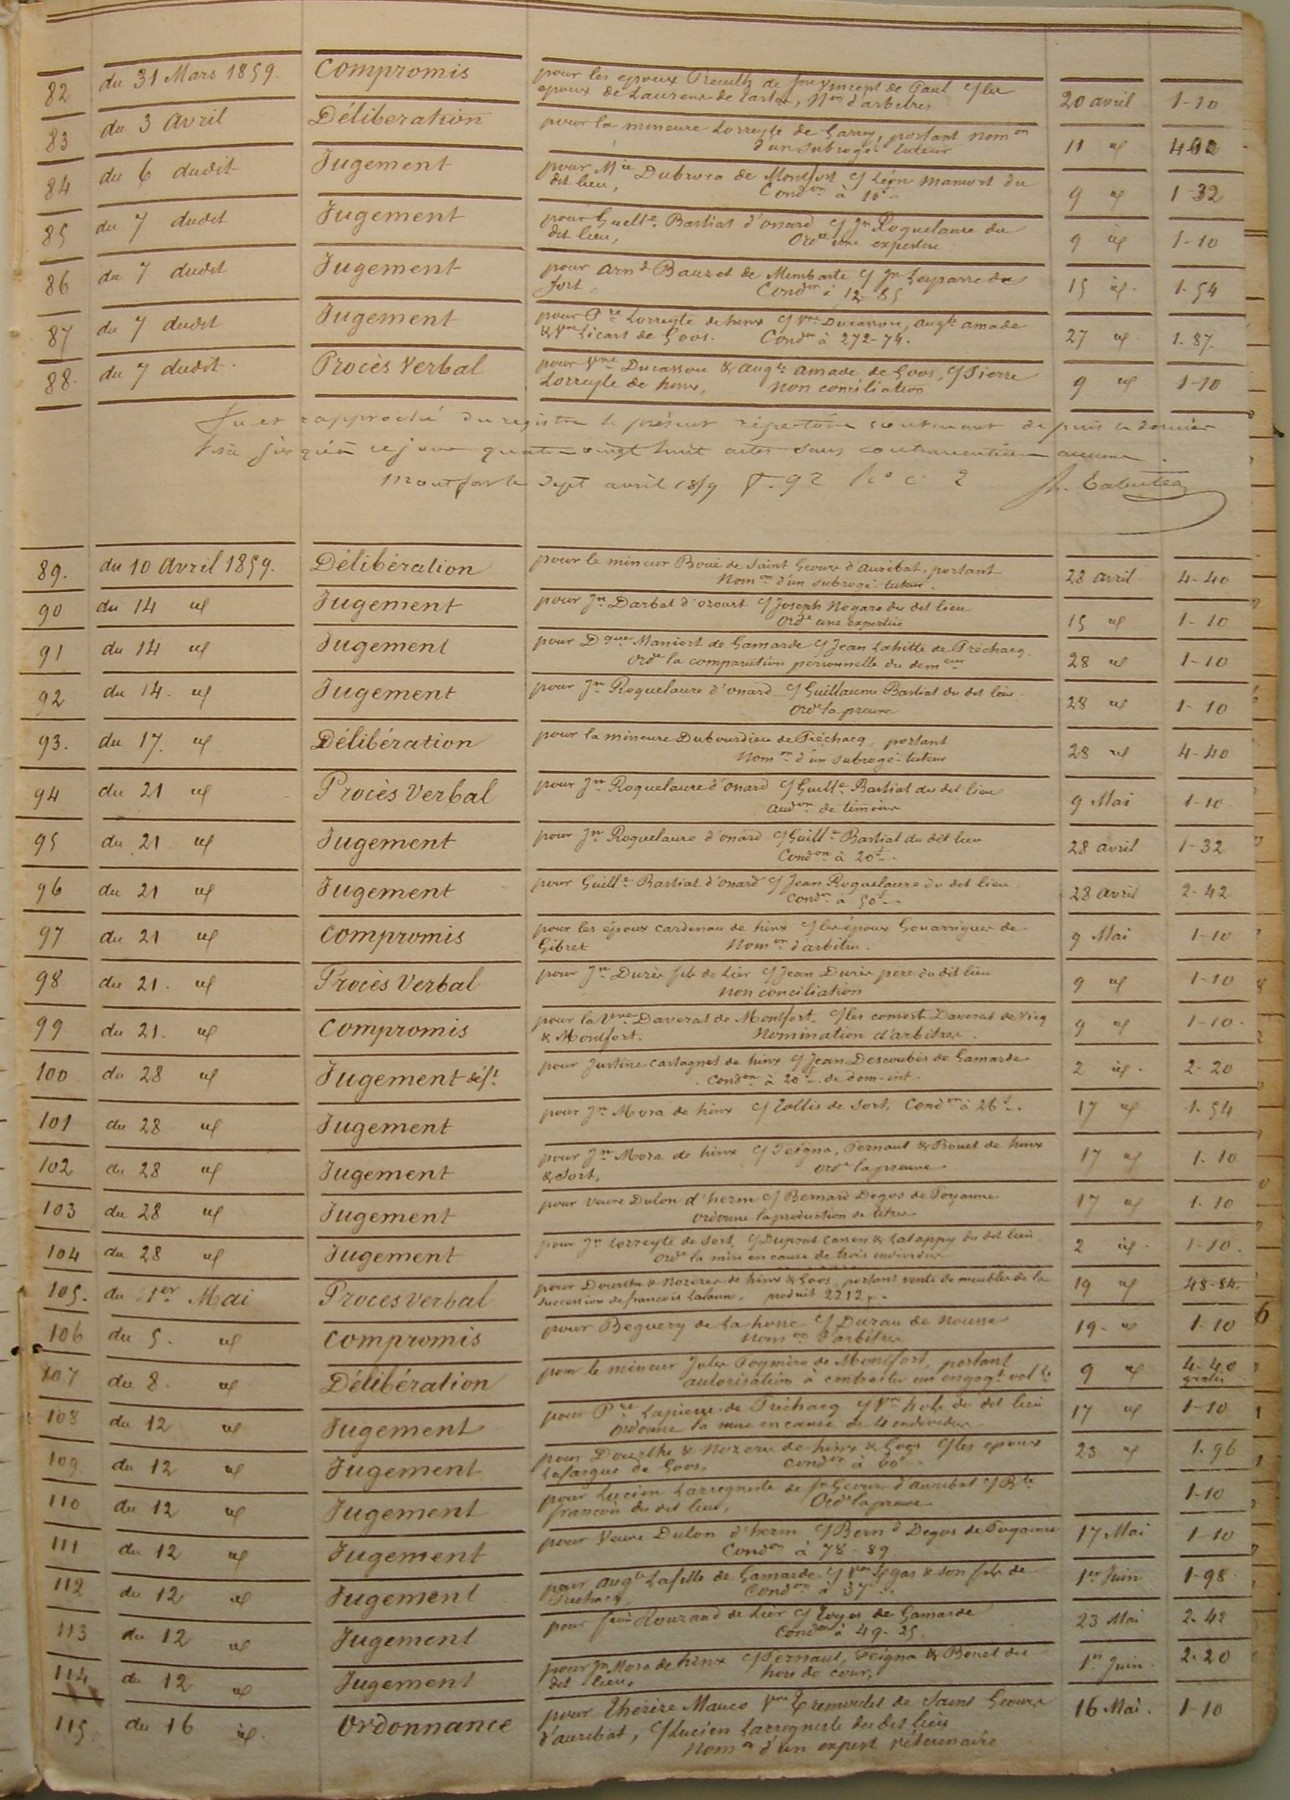 82 du 31 Mars 1859. Compromis pour les epoux de St Vincent de Paul c/ les 20 avril 1-10
epoux de Laurens de Nom d'arbitres
83 du 3 avril Délibération pour la mineure Lorreyte de portant nomon 11 id
d'un subrogé tuteur
84 du 6 dudit Jugement pour Mie Dubrora de Montfort c/ Léon du 9 id 1-32
dit lieu, Condon à 10f
85 du 7 dudit Jugement pour Guille Bastiat d'onard c/ Jn Roquelaure du 9 id 1-10
dit lieu, Orde une expertise
86 du 7 dudit Jugement pour Arnd Bauzet de Mimbaste c/ Jn Lesparre de 15 id 1-54
Sort. Condon à 12-85
87 du 7 dudit Jugement pour Pre Lorreyte de hinx c/ Vve Ducassou, augte amade 27 id 1-87.
& Vve Licart de Goos. Condon à 272-74.
88. du 7 dudit. Procès Verbal pour Vve Ducassou & augte amade de Goos, c/ Pierre 9 id 1-10
Lorreyte de hinx, Non conciliation
Vu et rapproché du registre le présent répertoire contenant depuis le dernier
Visa jusqu'à ce jour quatre vingt huit actes sans contravention aucune.
Montfort le Sept avril 1859 f. 92 Ro c. 2
89. du 10 Avril 1859. Délibération pour le mineur Boué de Saint Geours d'auribat, portant 28 avril 4-40
Nomon d'un subrogé-tuteur.
90 du 14 id Jugement pour Jn Darbat d'ozourt c/ Joseph Nogaro du dit lieu 15 id 1-10
Orde une expertise
91 du 14 id Jugement pour Dque Maniort de Gamarde c/ Jean Lahitte de Préchacq. 28 id 1-10
Orde la comparution personnelle du dem eur
92 du 14. id Jugement pour Jn Roquelaure d'onard c/ Guillaume Bastiat du dit lieu 28 id 1-10
Orde la preuve
93. du 17. id Délibération pour la mineure Dubourdieu de Préchacq, portant 28 id 4-40
Nomon d'un subrogé-tuteur
94 du 21 id Procès Verbal pour Jn Roquelaure d'onard c/ Guille Bastiat du dit lieu 9 Mai 1-10
audon de témoins
95 du 21 id Jugement pour Jn Roquelaure d'onard c/ Guille Bastiat du dit lieu 28 avril 1-32
Condon à 20f
96 du 21 id Jugement pour Guille Bastiat d'onard c/ Jean Roquelaure du dit lieu 28 avril 2-42
Condon à 50f
97 du 21 id Compromis pour les époux Cardenau de hinx c/ les époux Gouarrigues de 9 Mai 1-10
Gibret Nomon d'arbitres.
98 du 21. id Procès Verbal pour Jn Durin fils de Lier c/ Jean Durin père du dit lieu 9 id 1-10
Non conciliation
99 du 21. id Compromis pour la Vve Daverat de Montfort. c/ les consorts Daverat de Vicq 9 id 1-10.
& Montfort. Nomination d'arbitres.
100 du 28 id Jugement déft pour Justine Castagnet de hinx c/ Jean Descoubès de Gamarde 2 id 2-20
Condon à 20f de dom-int
101 du 28 id Jugement pour Jn Mora de hinx c/ Tollis de Sort. Condon à 26f. 17 id 1-54
102 du 28 id Jugement pour Jn Mora de hinx c/ Teigna, Pernaut & Bouet de hinx 17 id 1-10
& Sort, Orde la preuve
103 du 28 id Jugement pour veuve Dulon d'herm c/ Bernard Degos de Poyanne 17 id 1-10
Ordonne la production de titres
104 du 28 id Jugement pour Jn Lorreyte de Sort c/ Duprat & Latappy du dit lieu 2 id. 1-10.
Orde la mise en cause de trois individus
105. du 1er Mai Procès verbal pour Dourthe & Nozeres de hinx & Goos, portant vente de meubles de la 19 id 48-84.
succession de francois Lalanne, produit 2212f.
106 du 5. id Compromis pour Beguery de la hosse c/ Duzau de Nousse 19. id 1-10
Nomon d'arbitres
107 du 8. id Délibération pour le mineur Jules de Montfort, portant 9 id 4-40
autorisation à contracter un engagt volre gratis
108 du 12 id Jugement pour Pre Lapierre de Préchacq c/ du dit lieu 17 id 1-10
Ordonne la mise en cause de 4 individus
109 du 12 id Jugement pour Dourthe & Nozeres de hinx & Goos c/ les epoux 23 id 1-96
Lafargue de Goos. Condon à 60f
110 du 12 id Jugement pour Lucien Larregneste de St Geours d'auribat c/ Bte 1-10
francois du dit lieu, Orde la preuve
111 du 12 id Jugement pour Veuve Dulon d'herm c/ Bernd Degos de Poyanne 17 Mai 1-10
Condon à 78-89
112 du 12 id Jugement pour augte Lafitte de Gamarde c/ & son fils de 1er Juin 1-98
Préchacq Condon à 37f
113 du 12 id Jugement pour de Lier c/ de Gamarde 23 Mai 2-42
Condon à 49-25.
114 du 12 id Jugement pour Jn Mora de hinx c/ Pernaut, Teigna & Bouet du 1er Juin. 2-20
dit lieu. hors de cour,
115 du 16 id. Ordonnance pour thérèse Mauco Vve de Saint Geours 16 Mai. 1-10
d'auribat, c/ Lucien Larregneste du dit lieu
Nomon d'un expert véterinaire